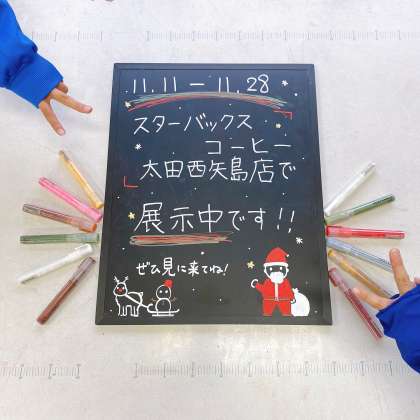 11.11 ― 11.28
スターバックス
コーヒー
太田西矢島店で
展示中です!!
ぜひ見に来てね!